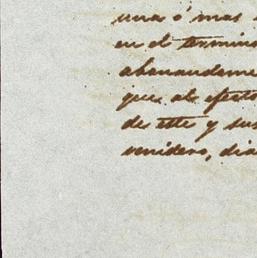 una ó mas
en el termino
abonandome
que al efecto
de este y sus
venidero, dia